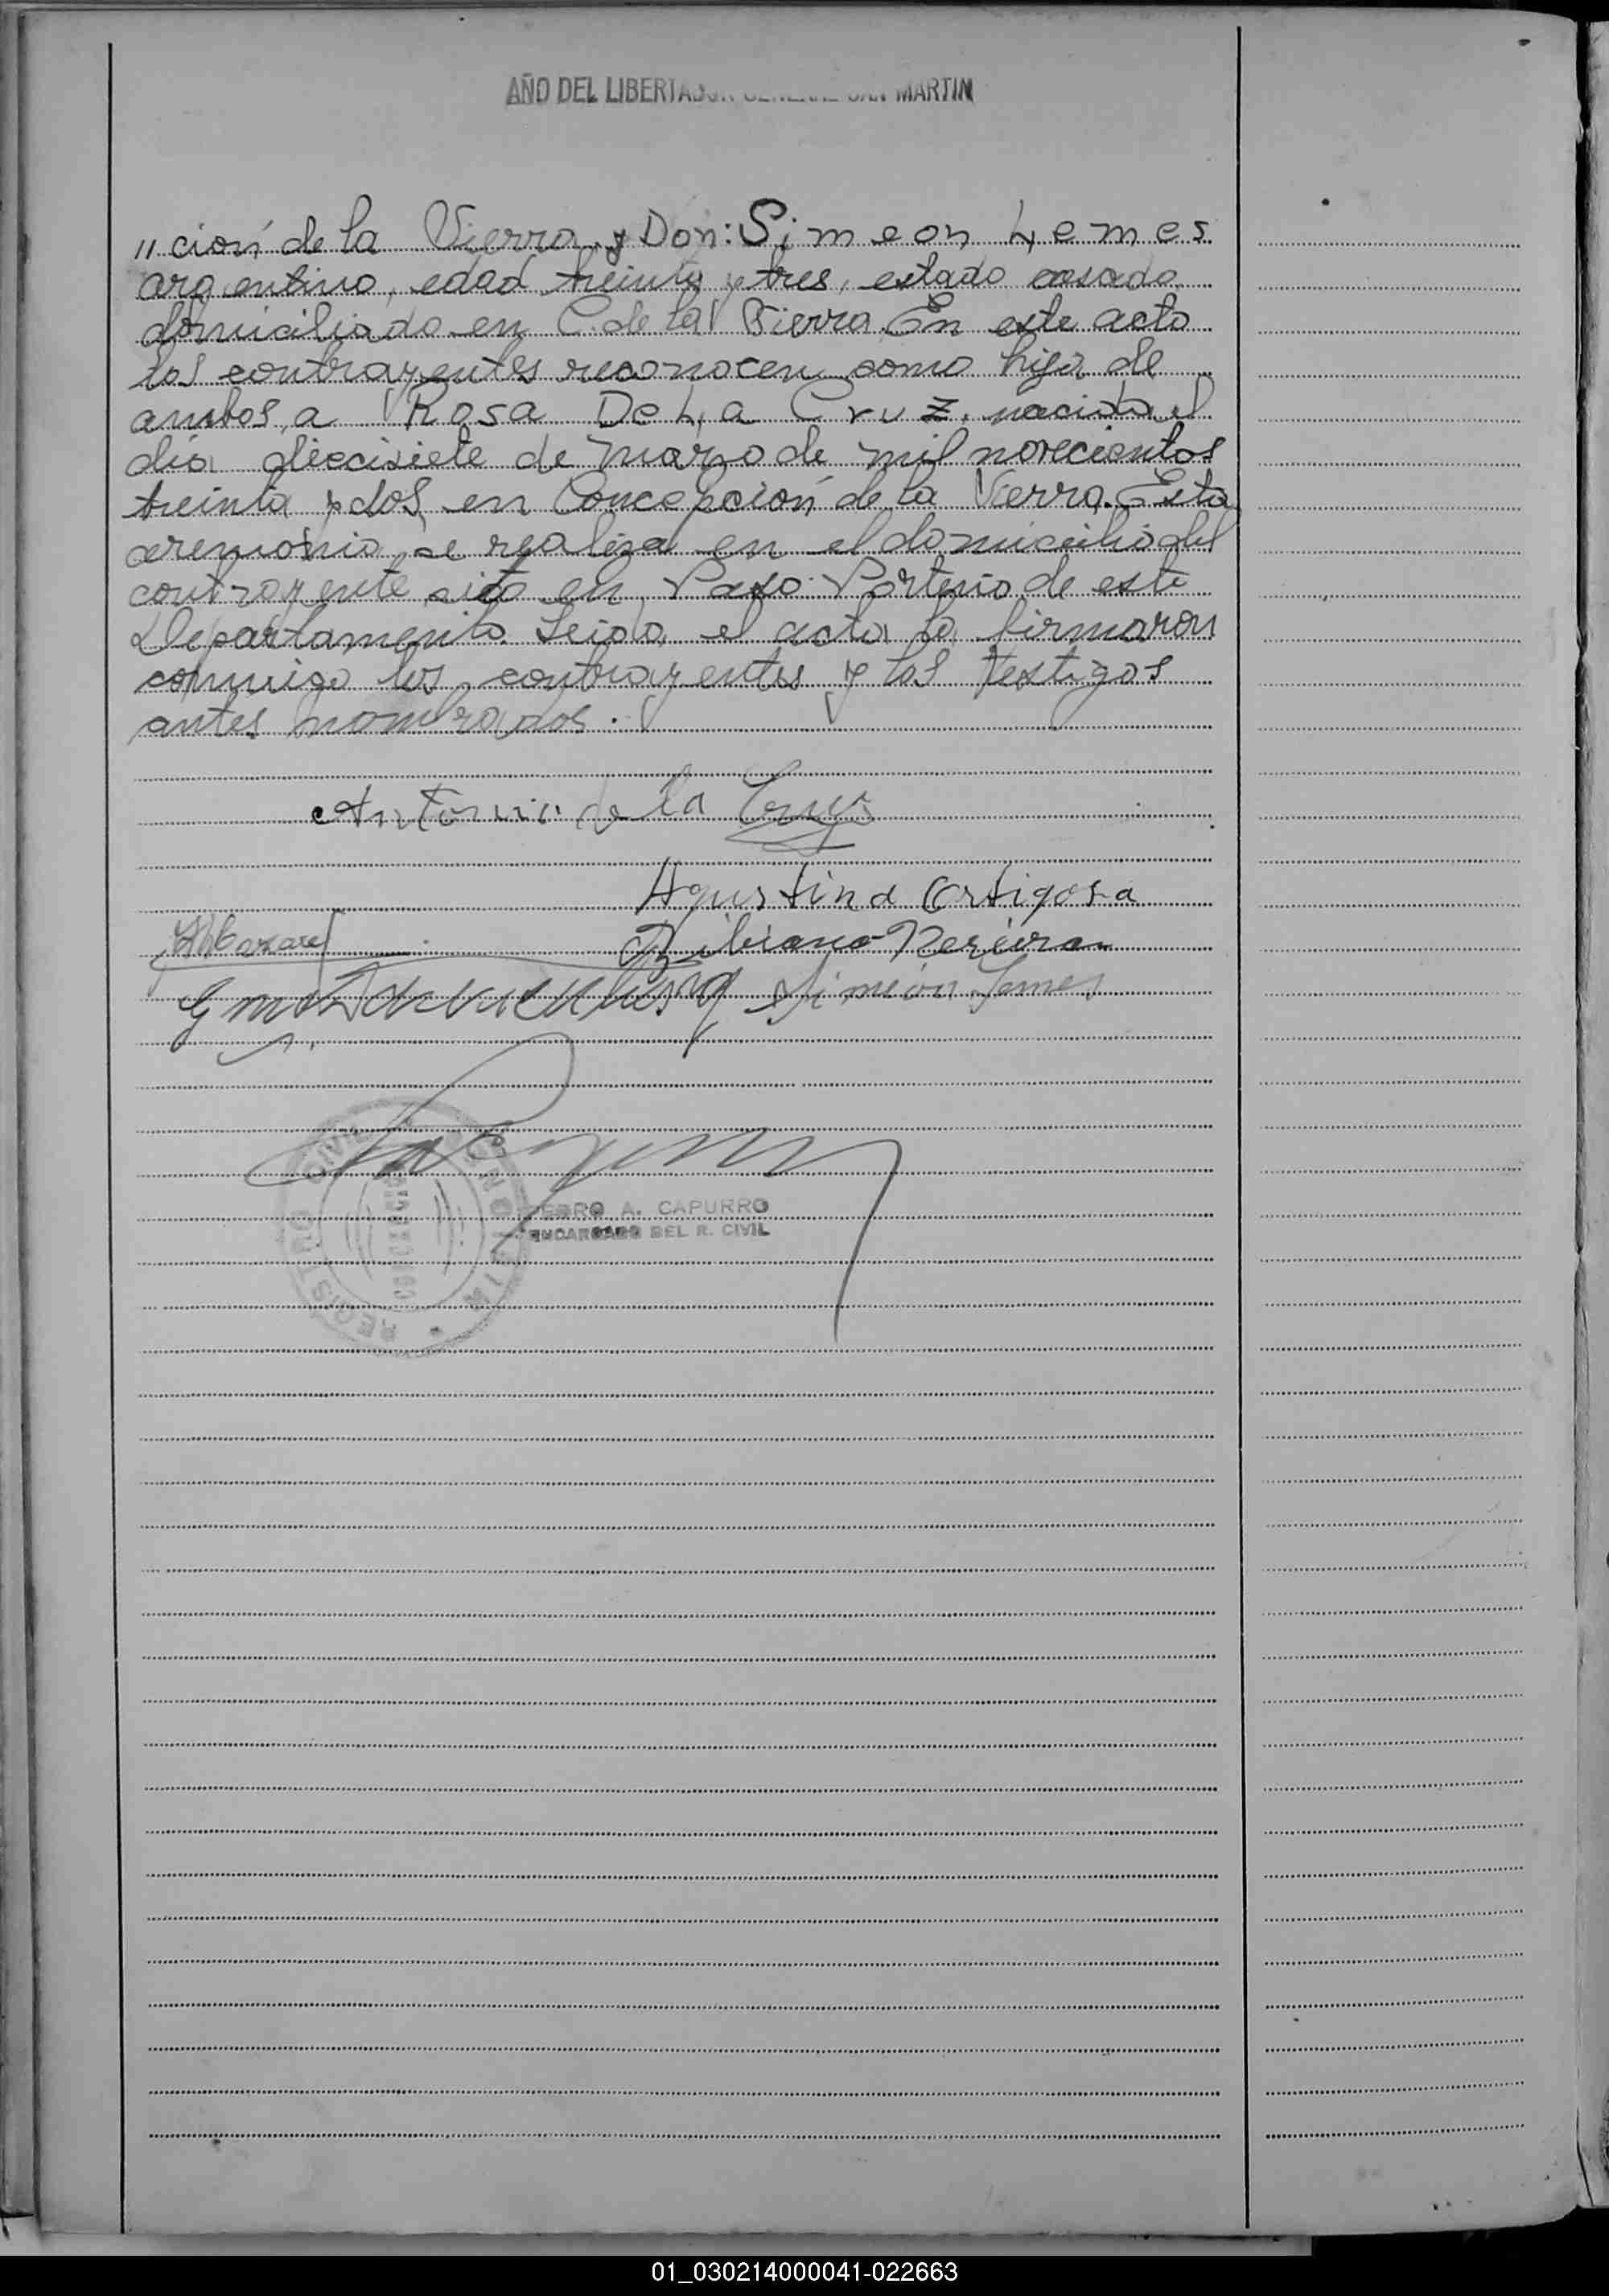 AÑO DEL LIBERTADOR GENERAL SAN MARTIN
"ción de la Sierra y Don: Simeon Lemes
argentino, edad treinta y tres, estado casado,
domiciliado en C. de la Sierra. En este acto
los contrayentes reconocen como hija de
ambos, a Rosa De La Cruz, nacida el
día diecisiete de marzo de mil novecientos
treinta y dos, en Concepción de la Sierra. Esta
ceremonia se realiza en el domicilio del
contrayente sito en Paso Porteño de este
Departamento. Leida el acta la firmaron
conmigo los contrayentes y los testigos
antes nombrados.
Antonio de la Cruz
Agustina Ortigosa
Bibiano Pereira
Simeón Lemes
PEDRO A. CAPURRO
ENCARGADO DEL R. CIVIL
REGISTRO CIVIL
01_030214000041-022663